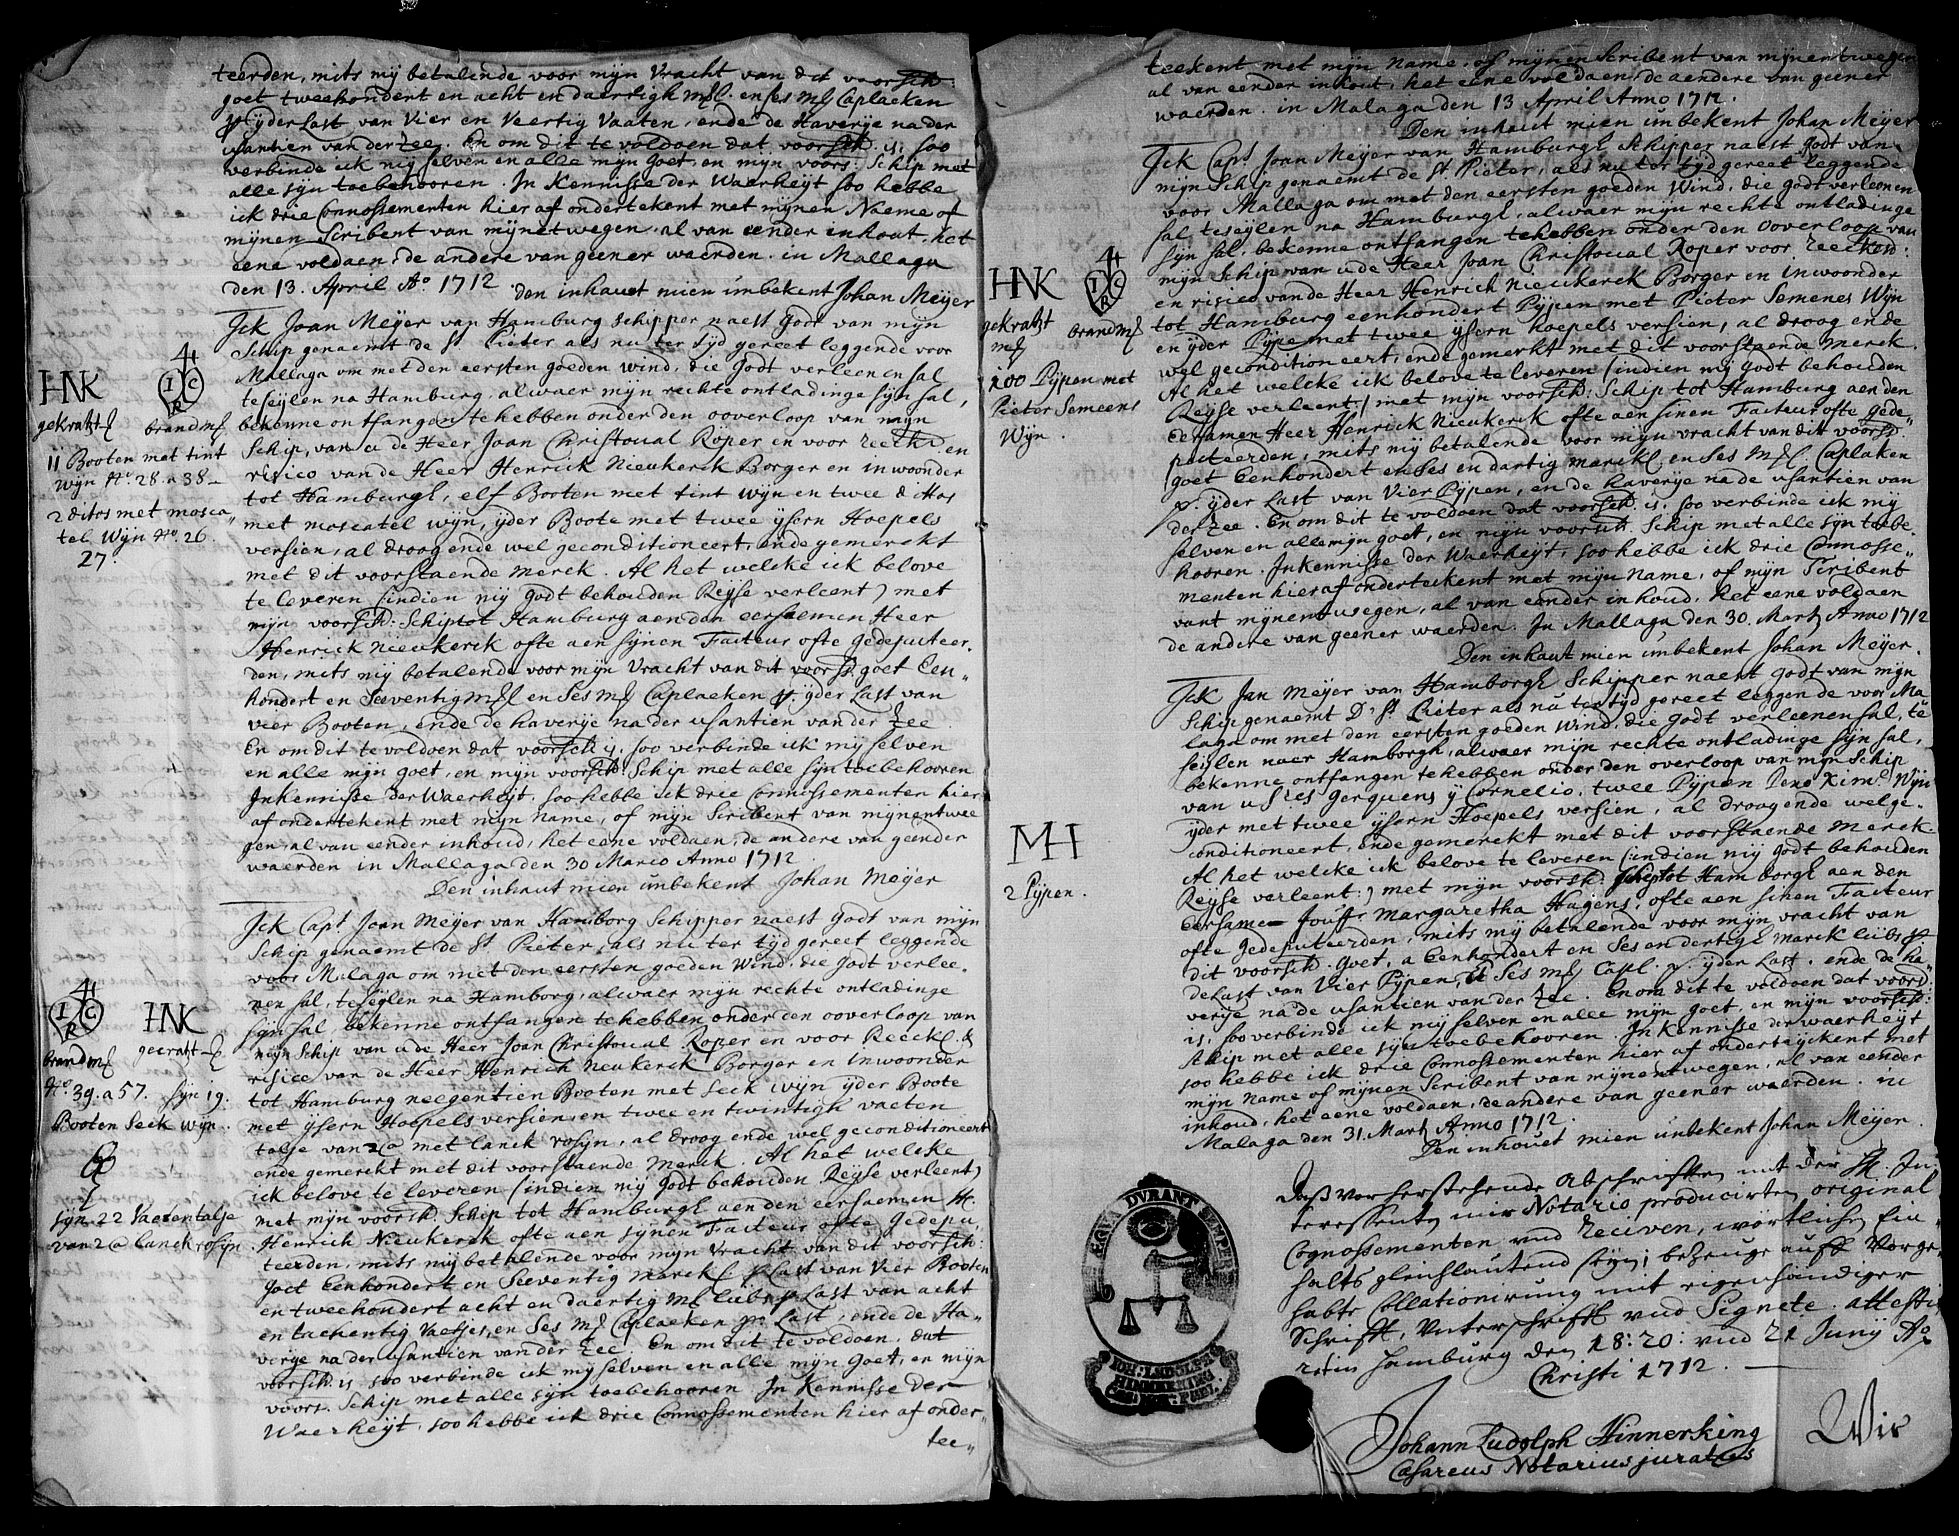 teerden, mits mij betalende voor mijn Vracht van dit voorsch:
goet tweehondert en acht en daertigh m&l. en ses m& Caplaeken
p yder Last van Vier en Veertig Vaaten, ende de Haverije na der
usantien van der Zee. En om dit te voldoen dat voorsch. is, soo
verbinde ick mij selven en alle mijn goet, en mijn voors: Schip met
alle sijn toebehooren. In Kennisse der Waerheijt soo hebbe
ick drie Connossementen hier af ondertekent met mijnen Naeme of
mijnen Scribent van mijnetwegen, al van eender inhout, het
eene voldaen, de andere van geener waerden. in Mallaga
den 13. April Ao. 1712. den inhaut mien unbekent Johan Meijer
Ick Joan Meijer van Hamburg Schipper naest Godt van mijn
Schip genaemt de St. Pieter als nu ter tijd gereet leggende voor
Mallaga om met den eersten goeden wind, die Godt verleenen sal
te seijlen na Hamburg, alwaer mijn rechte ontladinge sijn sal,
bekenne ontfangen te hebben onder den ooverloop van mijn
Schip, van u de Heer Joan Christoual Röper en voor reeck. en
risico van de Heer Henrick Nieukerck Borger en inwoonder
tot Hamburgh, elf Booten met tint wijn en twee ditos
met moscatel wijn, ijder Boote met twee ijsern Hoepels
versien, al droog ende wel geconditioneert, ende gemerckt
met dit voorstaende merck. Al het welcke ick belove
te leveren (indien mij Godt behouden Reijse verleent) met
mijn voorsch. Schip tot Hamburg aen den eersaemen Heer
Henrick Nieukerck ofte aen sijnen Facteur ofte gedeputeer-
den, mits mij betalende voor mijn Vracht van dit voorsch. goet Een-
hondert en Seeventig m&l en Ses m& Caplaeken p ijder Last van
veer Booten, ende de haverije na der usantien van der Zee.
En om dit te voldoen dat voorsch is, soo verbinde ick mij selven
en alle mijn goet, en mijn voorsch Schip met alle sijn toebehooren
In kennisse der Waerheijt, soo hebbe ick drie Connossementen hier
af ondertekent met mijn name, of mijn Scribent van mijnentwee
gen, al van eender inhoud, het eene voldaen, de andere van geender
waerden in Mallaga den 30 Marco Anno 1712
Den inhaut mien unbekent Johan Meijer
Ick Capt. Joan Meijer van Hamborg Schipper naest Godt van mijn
Schip genaemt de St Pieter, als nu ter tijd gereet leggende
voor Malaga om met den eersten goeden Wind, die Godt verlee-
nen sal, te seijlen na Hamborg, alwaer mijn rechte ontladinge
sijn sal, bekenne ontfangen te hebben onder den ooverloop van
mijn Schip van u de Heer Joan Christoual Roper en voor Reeck. &
risico van de Heer Henrick Neukerck Borger en Inwoonder
tot Hamburg neegentien Booten met Seck wijn ijder Boote
met ijsern Hoepels versien, en twee en twintigh vaeten
talje van 2@ met lanck rosijn, al droog ende wel geconditioneert
ende gemerckt met dit voorstaende Merck. Al het welcke
ick belove te leveren (indien mij Godt behouden Reijse verleent)
met mijn voorsch Schip tot Hamburgh aen den eersaemen H.
Henrich Nieukerck ofte aen sijnen Facteur ofte Gedepu-
teerden, mits mij betalende voor mijn Vracht van dit voorsch:
goet Eenhondert en Seeventig marck p Last van Vier Booten
en tweehondert acht en daertig m& lubs p Last van acht
en tachentig Vaetjes, en Ses m& Caplaeken pr. Last, ende de Ha-
verije na der usantien van der Zee. En om dit te voldoen, dat
voorsch is soo verbinde ick mij selven en alle mijn Goet, en mijn
voors. Schip met alle sijn toebehooren In Kennisse der
Waerheijt, soo hebbe ick drie Connossementen hier af onder-
tee-
HNK ICR
gekratzt & brandm&
11 Booten met tint
wijn No. 28. a 38-
2 ditos met mosca
tel. Wijn No. 26.
27.
ICR HNK
brandm& gecratzt
No. 39. a 57. sijn 19.
Booten Seck wijn.
sijn 22 Vaeten talje
van 2@ lanck rosijn.
teekent met mijn name, of mijnen Scribent van mijnentwegen
al van eender inhout, het eene voldaen, de aendere van geener
waerden. in Malaga den 13 April Anno 1712.
Den inhaut mien unbekent Johan Meijer
Ick Capt. Joan Meijer van Hamburgh Schipper naest Godt van
mijn Schip genaemt de St. Pieter, als nu ter tijd gereet leggende
voor Mallaga om met den eersten goeden Wind, die Godt verleenen
sal te seijlen na Hamburgh, alwaer mijn rechte ontladinge
sijn sal, bekenne ontfangen te hebben onder den ooverloop van
mijn Schip van u de Heer Joan Christoual Roper voor reeken.
en risico van de Heer Henrich Nieukerck Borger en inwoonder
tot Hamburg eenhondert Pijpen met Pieter Semenes Wijn
en ijder Pijpe met twee ijsern hoepels versien, al droog ende
wel geconditioneert, ende gemerkt met dit voorstaende merck.
Al het welcke ick belove te leveren (indien mij Godt behouden
Reijse verleent:) met mijn voorsch: Schip tot Hamburg aen den
eersamen Heer Henrick Nieukerck ofte aen sinen Facteur ofte Gede-
puteerden, mits mij betalende voor mijn vracht van dit voorsch.
goet Eenhondert en Ses en dartig marck& en Ses m&l Caplaken
pr. ijder Last van Vier Pijpen, en de haverije na de usantien van
der Zee. En om dit te voldoen dat voorsch. is, soo verbinde ick mij
selven en alle mijn goet, en mijn voorsch. Schip met alle sijn toebe-
hooren. In kennisse der Waerheijt, soo hebbe ick drie Connosse-
menten hier af ondertekent met mijn Name, of mijn Scribent
vant mijnentwegen, al van eender inhoud, het eene voldaen
de andere van geener waerden. In Mallaga den 30. Martz Anno 1712
Den inhaut mien unbekent Johan Meijer.
Ick Jan Meijer van Hamborgh Schipper naest Godt van mijn
Schip genaemt D. St. Pieter als nu ter tijd gereet leggende voor Ma-
laga om met den eersten goeden Wind, die Godt verleenen sal, te
seijlen naer Hamborgh, alwaer mijn rechte ontladinge sijn sal,
bekenne ontfangen te hebben onder den overloop van mijn Schip
van u Sres Gerquens ij Cornelio, twee Pijpen Pero Xime. Wijn
ijder met twee ijsern Hoepels versien, al droogende welge-
conditioneert, ende gemerckt met dit voorstaende merck
Al het welcke ick belove te leveren (indien mij Godt behouden
Reijse verleent:) met mijn voorsch. Schip tot Hamborgh aen den
eersame Jouffr. Margaretha Hagens, ofte aen sinen Facteur
ofte gedeputeerden, mits mij betalende voor mijn vracht van
dit voorsch. Goet, a Eenhondert en Ses en dertigh marck lübs p
de Last van Vier Pijpen, & Ses m& Capl. pr. ijder Last. ende de ha-
verije na de usantien van der Zee. En om dit te voldoen dat voorsch
is, soo verbinde ick mij selven en alle mijn Goet, en mijn voorsch:
Schip met alle sijn toebehooren. In Kennisse der waerheijt
soo hebbe ick drie Connossementen hier af onderteijckent met
mijn Name of mijnen Scribent van mijnentwegen, al van eender
inhoud, het eene voldaen, de andere van geener waerden. in
Malaga den 31. Martz Anno 1712.
Den inhouet mien unbekent Johan Meijer.
HNK ICR
gekratzt brandm&
m&
100 Pijpen met
Pieter Semeens
Wijn.
MH
2 Pijpen.
Daß vorherstehende Abschrifften mit der HH. In-
teressenten mir Notario producirten original
Cognossementen und Reciven, wörtliches Ein-
halts gleichlautend seyn; bezeuge auff Vorge-
habte Collationirung mit eigenhändiger
Schrifft, Unterschrifft und Signete. attesti-
ret in Hamburg den 18: 20: und 21 Junij Ao
Christi 1712.
Johann Ludolph Hinnerking
Cæsareus Notarius juratus
Wir
DVRANT SEMPER
IOH: LUDOLPH
HINNERKING
NOT: PUBL: